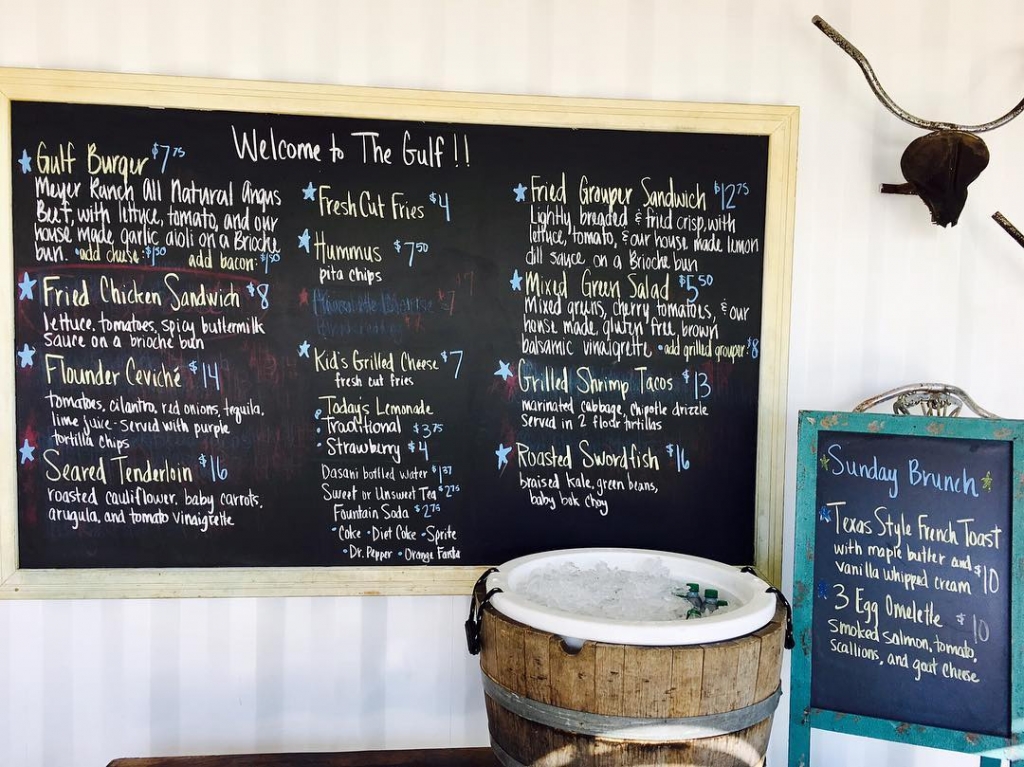 Welcome to The Gulf !!
Gulf Burger $7.75
Meyer Ranch All Natural Angus
Beef, with lettuce, tomato, and our
house made garlic aioli on a Brioche
bun. • add cheese: $1.50 add bacon: $1.50
Fried Chicken Sandwich $8
lettuce, tomatoes, spicy buttermilk
sauce on a brioche bun
Flounder Ceviché $14
tomatoes, cilantro, red onions, tequila,
lime juice - served with purple
tortilla chips
Seared Tenderloin $16
roasted cauliflower, baby carrots,
arugula, and tomato vinaigrette
Fresh Cut Fries $4
Hummus $7.50
pita chips
Kid's Grilled Cheese $7
fresh cut fries
Today's Lemonade
• Traditional $3.75
• Strawberry $4
Dasani bottled water $1.37
Sweet or Unsweet Tea $2.75
Fountain Soda $2.75
• Coke • Diet Coke • Sprite
• Dr. Pepper • Orange Fanta
Fried Grouper Sandwich $12.75
Lightly breaded & fried crisp, with
lettuce, tomato, & our house made lemon
dill sauce on a Brioche bun
Mixed Green Salad $5.50
Mixed greens, cherry tomatoes, & our
house made gluten free brown
balsamic vinaigrette • add grilled grouper: $8
Grilled Shrimp Tacos $13
marinated cabbage, chipotle drizzle
served in 2 flour tortillas
Roasted Swordfish $16
braised kale, green beans,
baby bok choy
Sunday Brunch
Texas Style French Toast
with maple butter and $10
vanilla whipped cream
3 Egg Omelette $10
smoked salmon, tomato,
scallions, and goat cheese